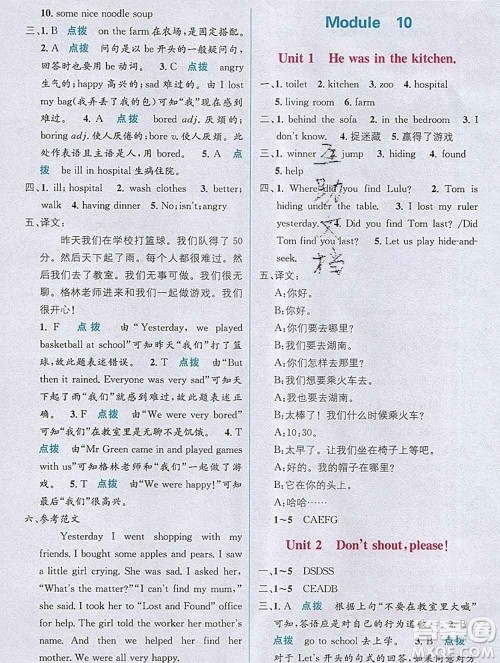 10. some nice noodle soup
三、1. B 点拨 on the farm 在农场，是固定搭配。
2. A 点拨 问句是以 be 开头的一般疑问句，
回答时也要以 be 回答。 3. A 点拨 angry
生气的；happy 高兴的；sad 难过的。由“I
lost my bag(我弄丢了我的包)”可知“我”很
难过。 4. A 点拨 bored adj. 厌倦的；
boring adj. 使人厌倦的；bore v. 使厌烦。此
处作表语且主语是人，用形容词 bored。
5. A 点拨 be ill in hospital 生病住院。
四、1. ill; hospital 2. wash clothes 3. better;
walk 4. having dinner 5. No; isn't waiting
五、译文：
昨天我们在学校打篮球。我们队得了 50
分。然后我们很累。每个人都很难过。
然后我们去了教室。我们感到很厌倦。
格林老师进来和我们一起做游戏。我们
很开心！
1. F 点拨 由“Yesterday, we played
basketball at school”可知昨天“我们”打了篮
球，故本题表述错误。 2. T 点拨 由“But
then it rained. Everyone was very sad”可知昨
天下起了雨，“我们”就感到很难过，故本题
表述正确。 3. F 点拨 由“We were very
bored”可知“我们”在教室里是无聊不是饥饿。
4. T 点拨 由“Mr Green came in and
played games with us”可知格林老师和“我
们”一起做了游戏。 5. T 点拨 由“We
were happy!”可知“我们”很高兴。
六、参考范文
Yesterday I went shopping with my
friends. We bought some apples and pears. I saw
a little girl crying. I stopped and asked her,
“What's the matter?” “I can't find my mum,”
she said. I took her to “Lost and Found” office
and told them about the little girl. They found her
mother. We were very happy.
Module 10
Unit 1 He was in the kitchen.
一、1. toilet 2. kitchen 3. zoo 4. hospital
5. living room 6. farm
二、1. under the table 2. behind the door 3. I
don't know. 4. 捉迷藏 5. 赢得了游戏
三、1. winner 2. jump 3. hiding 4. find
5. help
四、1. Where did you find Lulu? 2. Tom is
hiding under the table. 3. I lost my ruler
yesterday. 4. Did you find Tom last? / Did
Tom find you last? 5. Let us play hide-and-
seek.
五、译文：
A：你好。
B：你好。
A：你们要去哪里？
B：我们要去湖南。
A：你们怎样去那里？
B：我们乘火车去。
A：我也要去湖南。
B：太棒了！我们什么时候乘火车？
A：10:30。
B：太早了。让我们坐在椅子上等吧。
A：你的帽子在哪里？
B：它在你的头上。
A：哈哈……
1~5 CAEFG
Unit 2 Don't shout, please!
一、1~5 DSDSS
二、1~5 CEADB
三、1. A 点拨 根据上句“不要在教室里大喊”可